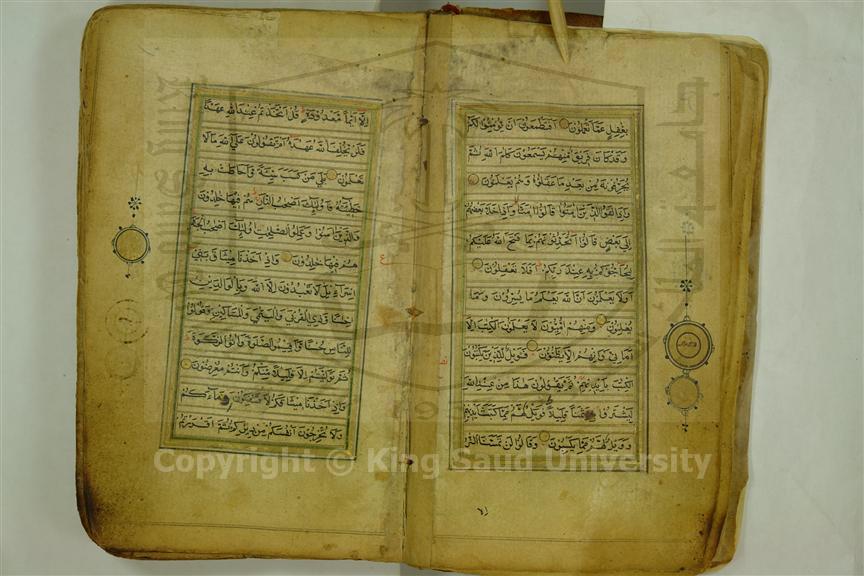 بِغَافِلٍ عَمَّا تَعْمَلُونَ اَفَتَطْمَعُونَ اَنْ يُؤْمِنُوا لَكُمْ
وَقَدْ كَانَ فَرِيقٌ مِنْهُمْ يَسْمَعُونَ كَلَامَ اللّٰهِ ثُمَّ
يُحَرِّفُونَهُ مِنْ بَعْدِ مَا عَقَلُوهُ وَهُمْ يَعْلَمُونَ
وَاِذَا لَقُوا الَّذِينَ اٰمَنُوا قَالُوا اٰمَنَّا وَاِذَا خَلَا بَعْضُهُمْ
اِلَى بَعْضٍ قَالُوا اَتُحَدِّثُونَهُمْ بِمَا فَتَحَ اللّٰهُ عَلَيْكُمْ
لِيُحَاجُّوكُمْ بِهِ عِنْدَ رَبِّكُمْ اَفَلَا تَعْقِلُونَ
اَوَلَا يَعْلَمُونَ اَنَّ اللّٰهَ يَعْلَمُ مَا يُسِرُّونَ وَمَا
يُعْلِنُونَ وَمِنْهُمْ اُمِّيُّونَ لَا يَعْلَمُونَ الْكِتَابَ اِلَّا
اَمَانِيَّ وَاِنْ هُمْ اِلَّا يَظُنُّونَ فَوَيْلٌ لِلَّذِينَ يَكْتُبُونَ
الْكِتَابَ بِاَيْدِيهِمْ ثُمَّ يَقُولُونَ هٰذَا مِنْ عِنْدِ اللّٰهِ
لِيَشْتَرُوا بِهِ ثَمَنًا قَلِيلًا فَوَيْلٌ لَهُمْ مِمَّا كَتَبَتْ اَيْدِيهِمْ
وَوَيْلٌ لَهُمْ مِمَّا يَكْسِبُونَ وَقَالُوا لَنْ تَمَسَّنَا النَّارُ
اِلَّا اَيَّامًا مَعْدُودَةً قُلْ اَتَّخَذْتُمْ عِنْدَ اللّٰهِ عَهْدًا
فَلَنْ يُخْلِفَ اللّٰهُ عَهْدَهُ اَمْ تَقُولُونَ عَلَى اللّٰهِ مَا لَا
تَعْلَمُونَ بَلٰى مَنْ كَسَبَ سَيِّئَةً وَاَحَاطَتْ بِهِ
خَطِيئَتُهُ فَاُولٰئِكَ اَصْحَابُ النَّارِ هُمْ فِيهَا خَالِدُونَ
وَالَّذِينَ اٰمَنُوا وَعَمِلُوا الصَّالِحَاتِ اُولٰئِكَ اَصْحَابُ الْجَنَّةِ
هُمْ فِيهَا خَالِدُونَ وَاِذْ اَخَذْنَا مِيثَاقَ بَنِي
اِسْرَائِيلَ لَا تَعْبُدُونَ اِلَّا اللّٰهَ وَبِالْوَالِدَيْنِ
اِحْسَانًا وَذِي الْقُرْبٰى وَالْيَتَامٰى وَالْمَسَاكِينِ وَقُولُوا
لِلنَّاسِ حُسْنًا وَاَقِيمُوا الصَّلٰوةَ وَاٰتُوا الزَّكٰوةَ
ثُمَّ تَوَلَّيْتُمْ اِلَّا قَلِيلًا مِنْكُمْ وَاَنْتُمْ مُعْرِضُونَ
وَاِذْ اَخَذْنَا مِيثَاقَكُمْ لَا تَسْفِكُونَ دِمَاءَكُمْ
وَلَا تُخْرِجُونَ اَنْفُسَكُمْ مِنْ دِيَارِكُمْ ثُمَّ اَقْرَرْتُمْ
Copyright © King Saud University